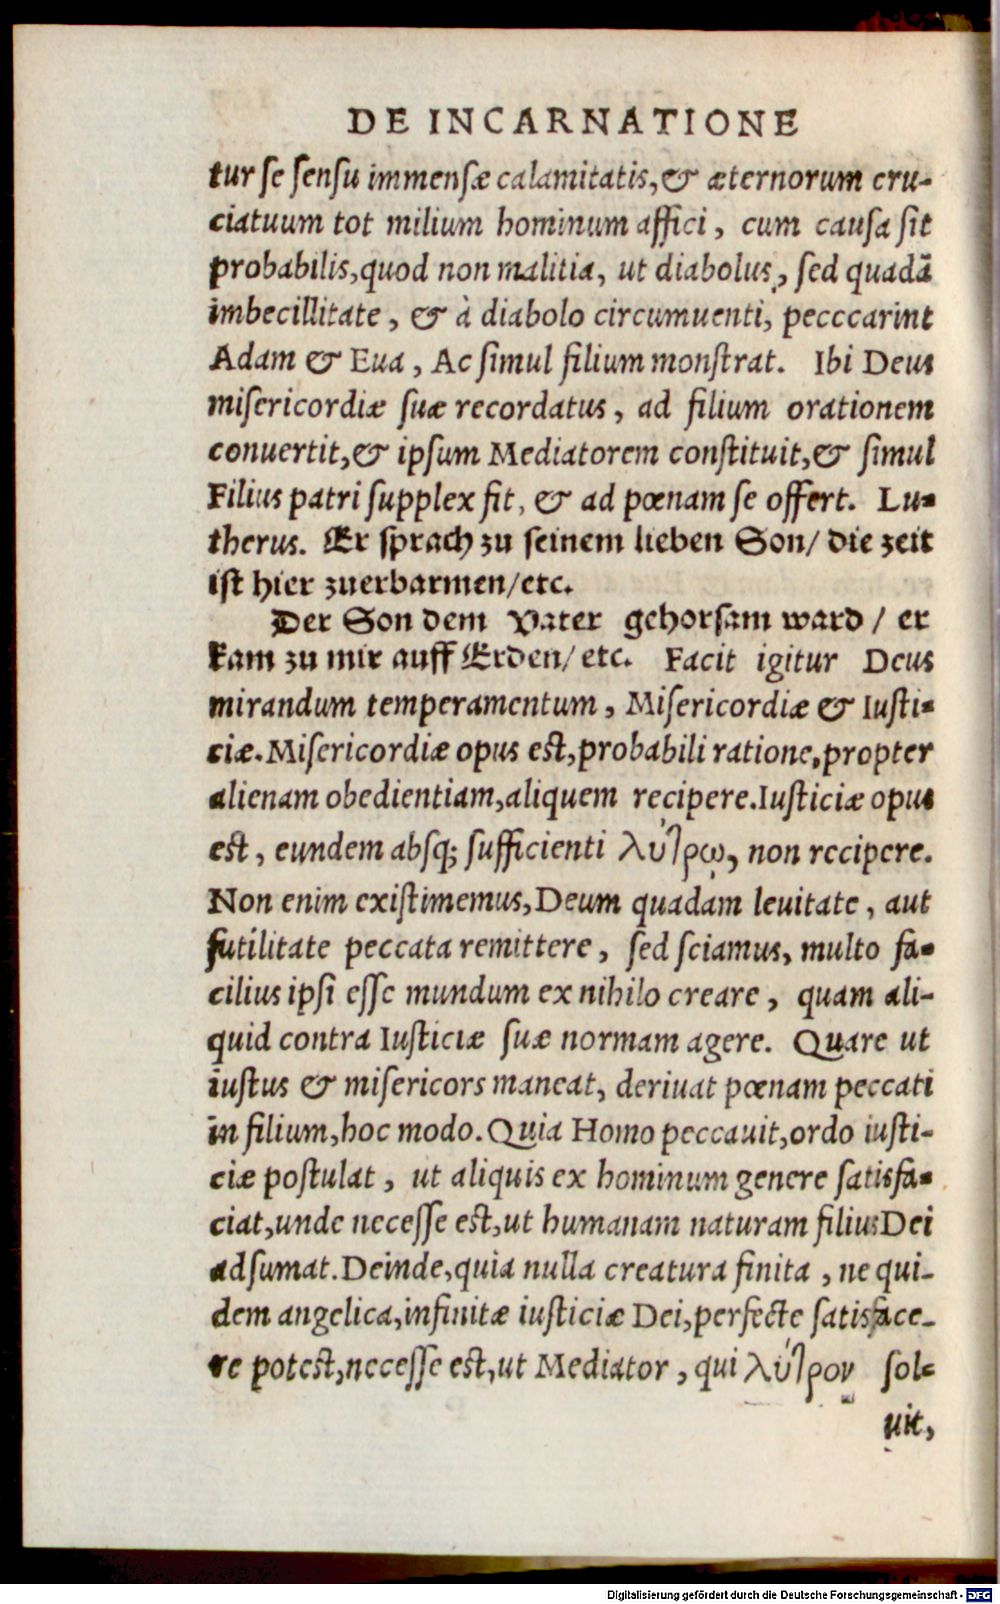 DE INCARNATIONE
tur se sensu immensæ calamitatis, & æternorum cru-
ciatuum tot milium hominum affici, cum causa sit
probabilis, quod non malitia, ut diabolus, sed quadã
imbecillitate, & à diabolo circumuenti, pecccarint
Adam & Eua, Ac simul filium monstrat. Ibi Deus
misericordiæ suæ recordatus, ad filium orationem
conuertit, & ipsum Mediatorem constituit, & simul
Filius patri supplex fit, & ad pœnam se offert. Lu-
therus. Er sprach zu seinem lieben Son/ die zeit
ist hier zuerbarmen/etc.
Der Son dem Vater gehorsam ward / er
kam zu mir auff Erden/ etc. Facit igitur Deus
mirandum temperamentum, Misericordiæ & Iusti-
ciæ. Misericordiæ opus est, probabili ratione, propter
alienam obedientiam, aliquem recipere. Iusticiæ opus
est, eundem absq; sufficienti λύτρῳ, non recipere.
Non enim existimemus, Deum quadam leuitate, aut
futilitate peccata remittere, sed sciamus, multo fa-
cilius ipsi esse mundum ex nihilo creare, quam ali-
quid contra Iusticiæ suæ normam agere. Quare ut
iustus & misericors maneat, deriuat pœnam peccati
in filium, hoc modo. Quia Homo peccauit, ordo iusti-
ciæ postulat, ut aliquis ex hominum genere satisfa-
ciat, unde necesse est, ut humanam naturam filius Dei
adsumat. Deinde, quia nulla creatura finita, ne qui-
dem angelica, infinitæ iusticiæ Dei, perfecte satisface-
re potest, necesse est, ut Mediator, qui λύτρον sol-
uit,
Digitalisierung gefördert durch die Deutsche Forschungsgemeinschaft - DFG